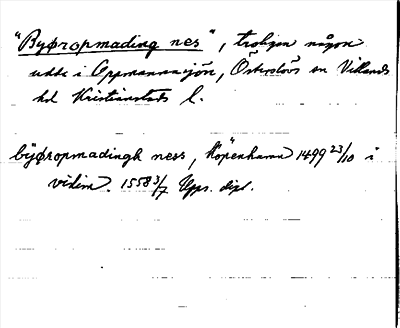 "Byøropmading nes", troligen någon
udde i Oppmannasjön, Österslövs sn Villands
hd Kristianstads l.
byøropmadingh ness, Köpenhamn 1499 23/10 i
vidim. 1558 3/7 Upps. dipl.